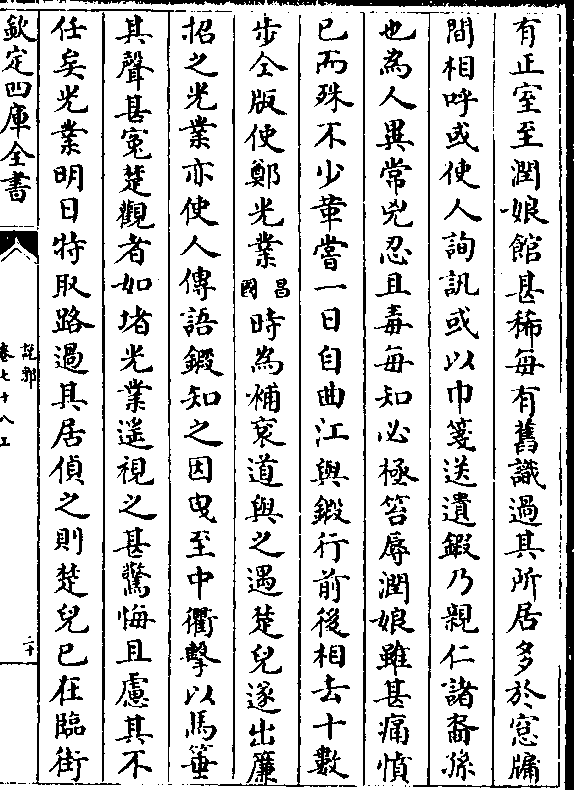 有正室至潤娘館甚稀每有舊識過其所居多於窓牖
間相呼或使人詢訊或以巾箋送遺鍛乃親仁諸裔孫
也為人異常兇忍且毒每知必極笞辱潤娘雖甚痛憤
已而殊不少革嘗一日自曲江與鍛行前後相去十數
步仝版使鄭光業昌國時為補衮道與之遇楚兒遂出簾
招之光業亦使人傳語鍛知之因曳至中衢擊以馬箠
其聲甚寃楚觀者如堵光業遥視之甚驚悔且慮其不
任矣光業明日特取路過其居偵之則楚兒已在臨街
欽定四庫全書
說郛
卷七十八上
二十